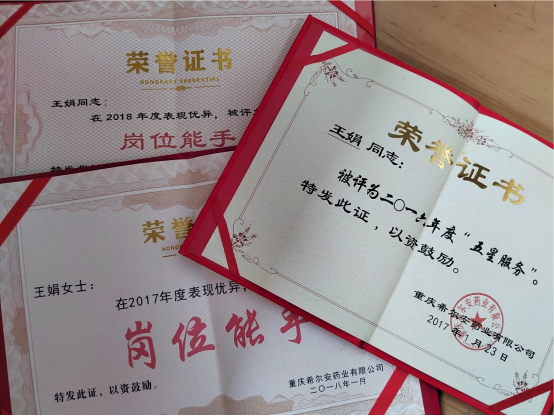 荣誉证书
HONORARY CREDENTIAL
王娟同志：
在2018年度表现优异，被评
岗位能手
荣誉证书
王娟 同志：
被评为二〇一六年度“五星服务”。
特发此证，以资鼓励。
重庆希尔安药业有限公司
2017年1月23日
荣誉
王娟女士：
在2017年度表现优异，
岗位能手
特发此证，以资鼓励。
重庆希尔安药业有限公司
二〇一八年一月